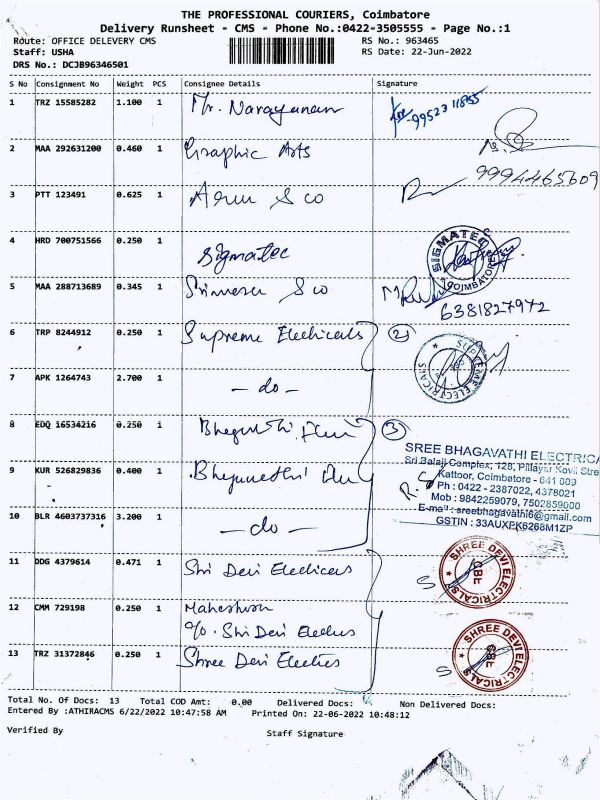 THE PROFESSIONAL COURIERS, Coimbatore
Delivery Runsheet - CMS - Phone No.:0422-3505555 - Page No.:1
Route: OFFICE DELEVERY CMS RS No.: 963465
Staff: USHA RS Date: 22-Jun-2022
DRS No.: DCJB96346501
S No Consignment No Weight PCS Consignee Details Signature
1 TRZ 15585282 1.100 1 Mr. Narayanan
2 MAA 292631200 0.460 1 Graphic Arts 9994465609
3 PTT 123491 0.625 1 Arun & co
4 HRD 700751566 0.250 1 Sigmatec SIGMATEC COIMBATORE
5 MAA 288713689 0.345 1 & co 6381827972
6 TRP 8244912 0.250 1 Supreme Electricals (2) SUPREME ELECTRICALS
7 APK 1264743 2.700 1 - do -
8 EDQ 16534216 0.250 1 (3)
SREE BHAGAVATHI ELECTRICA
Sri Balaji Complex, 128, Pillayar Kovil Stre
9 KUR 526829836 0.400 1 Kattoor, Coimbatore - 641 009
Ph : 0422 - 2387022, 4378021
Mob : 9842259079, 7502859000
E-mail : sreebhagavathi6@gmail.com
GSTIN : 33AUXPK6268M1ZP
10 BLR 4603737316 3.200 1 - do -
11 DDG 4379614 0.471 1 Shri Devi Electricals SHREE DEVI ELECTRICALS CBE
12 CMM 729198 0.250 1 Maheshwari
c/o. Shri Devi
13 TRZ 31372846 0.250 1 Shree Devi SHREE DEVI ELECTRICALS CBE
Total No. Of Docs: 13 Total COD Amt: 0.00 Delivered Docs: Non Delivered Docs:
Entered By :ATHIRACMS 6/22/2022 10:47:58 AM Printed On: 22-06-2022 10:48:12
Verified By Staff Signature